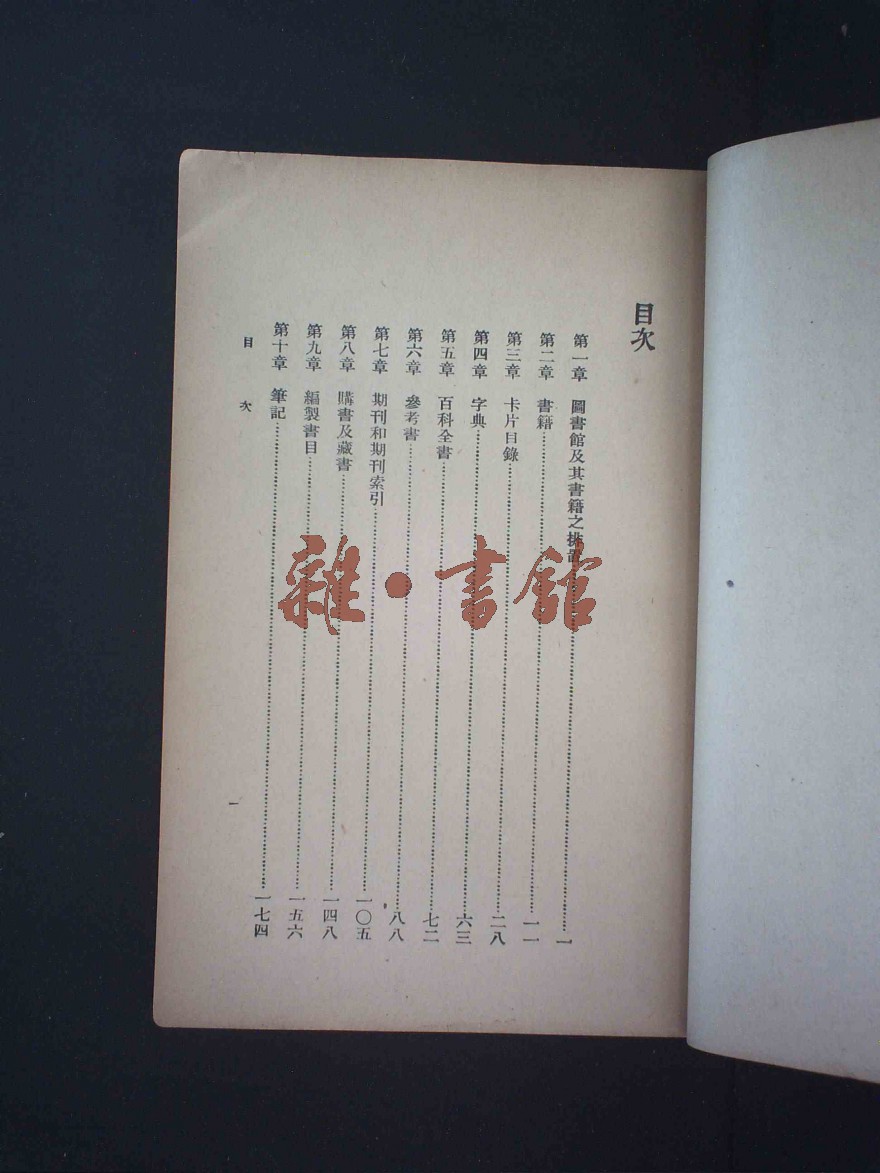 目次
第一章 圖書館及其書籍之排置 一
第二章 書籍 一一
第三章 卡片目錄 二八
第四章 字典 六三
第五章 百科全書 七二
第六章 參考書 八八
第七章 期刊和期刊索引 一〇五
第八章 購書及藏書 一四八
第九章 編製書目 一五六
第十章 筆記 一七四
目次 一
雜·書館